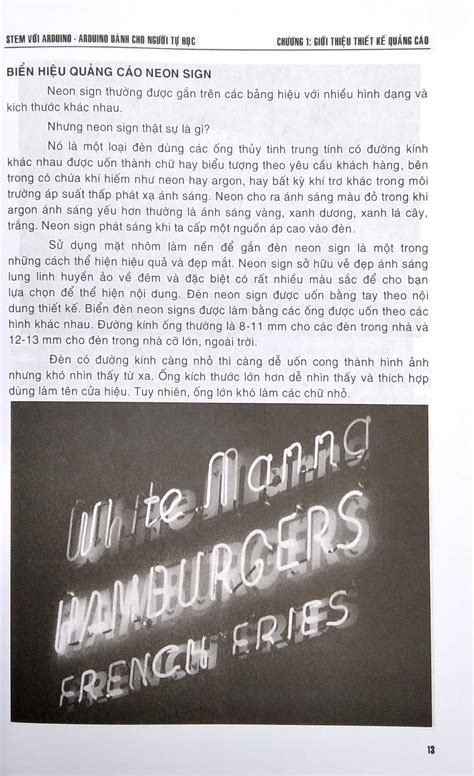 STEM VỚI ARDUINO - ARDUINO DÀNH CHO NGƯỜI TỰ HỌC CHƯƠNG 1: GIỚI THIỆU THIẾT KẾ QUẢNG CÁO
BIỂN HIỆU QUẢNG CÁO NEON SIGN
Neon sign thường được gắn trên các bảng hiệu với nhiều hình dạng và
kích thước khác nhau.
Nhưng neon sign thật sự là gì?
Nó là một loại đèn dùng các ống thủy tinh trung tính có đường kính
khác nhau được uốn thành chữ hay biểu tượng theo yêu cầu khách hàng, bên
trong có chứa khí hiếm như neon hay argon, hay bất kỳ khí trơ khác trong môi
trường áp suất thấp phát xạ ánh sáng. Neon cho ra ánh sáng màu đỏ trong khi
argon ánh sáng yếu hơn thường là ánh sáng vàng, xanh dương, xanh lá cây,
trắng. Neon sign phát sáng khi ta cấp một nguồn áp cao vào đèn.
Sử dụng mặt nhôm làm nền để gắn đèn neon sign là một trong
những cách thể hiện hiệu quả và đẹp mắt. Neon sign sở hữu vẻ đẹp ánh sáng
lung linh huyền ảo về đêm và đặc biệt có rất nhiều màu sắc để cho bạn
lựa chọn để thể hiện nội dung. Đèn neon sign được uốn bằng tay theo nội
dung thiết kế. Biển đèn neon signs được làm bằng các ống được uốn theo các
hình khác nhau. Đường kính ống thường là 8-11 mm cho các đèn trong nhà và
12-13 mm cho đèn trong nhà cỡ lớn, ngoài trời.
Đèn có đường kính càng nhỏ thì càng dễ uốn cong thành hình ảnh
nhưng khó nhìn thấy từ xa. Ống kích thước lớn hơn dễ nhìn thấy và thích hợp
dùng làm tên cửa hiệu. Tuy nhiên, ống lớn khó làm các chữ nhỏ.
White Manna
HAMBURGERS
FRENCH FRIES
13